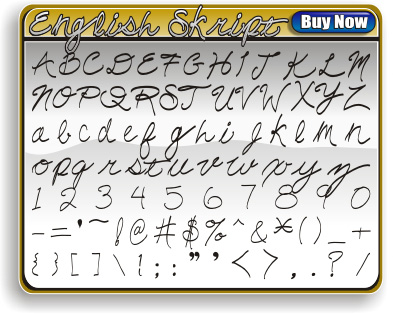 English Skript Buy Now
A B C D E F G H I J K L M
N O P Q R S T U V W X Y Z
a b c d e f g h i j k l m n
o p q r s t u v w x y z
1 2 3 4 5 6 7 8 9 0
- = ' ~ ! @ # $ % ^ & * ( ) _ +
{ } [ ] \ | ; : " ' < > , . ? /